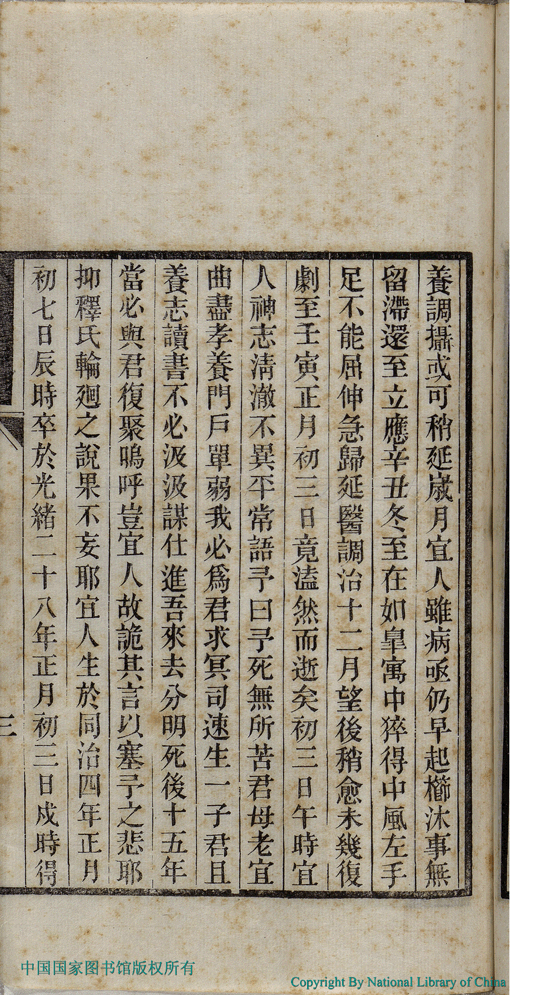 養調攝或可稍延歲月宜人雖病亟仍早起櫛沐事無
留滯還至立應辛丑冬至在如皐寓中猝得中風左手
足不能屈伸急歸延醫調治十二月望後稍愈未幾復
劇至壬寅正月初三日竟溘然而逝矣初三日午時宜
人神志淸澈不異平常語予曰予死無所苦君母老宜
曲盡孝養門戶單弱我必爲君求冥司速生一子君且
養志讀書不必汲汲謀仕進吾來去分明死後十五年
當必與君復聚嗚呼豈宜人故詭其言以塞予之悲耶
抑釋氏輪廻之說果不妄耶宜人生於同治四年正月
初七日辰時卒於光緒二十八年正月初三日戍時得
三
中国国家图书馆版权所有
Copyright By National Library of China